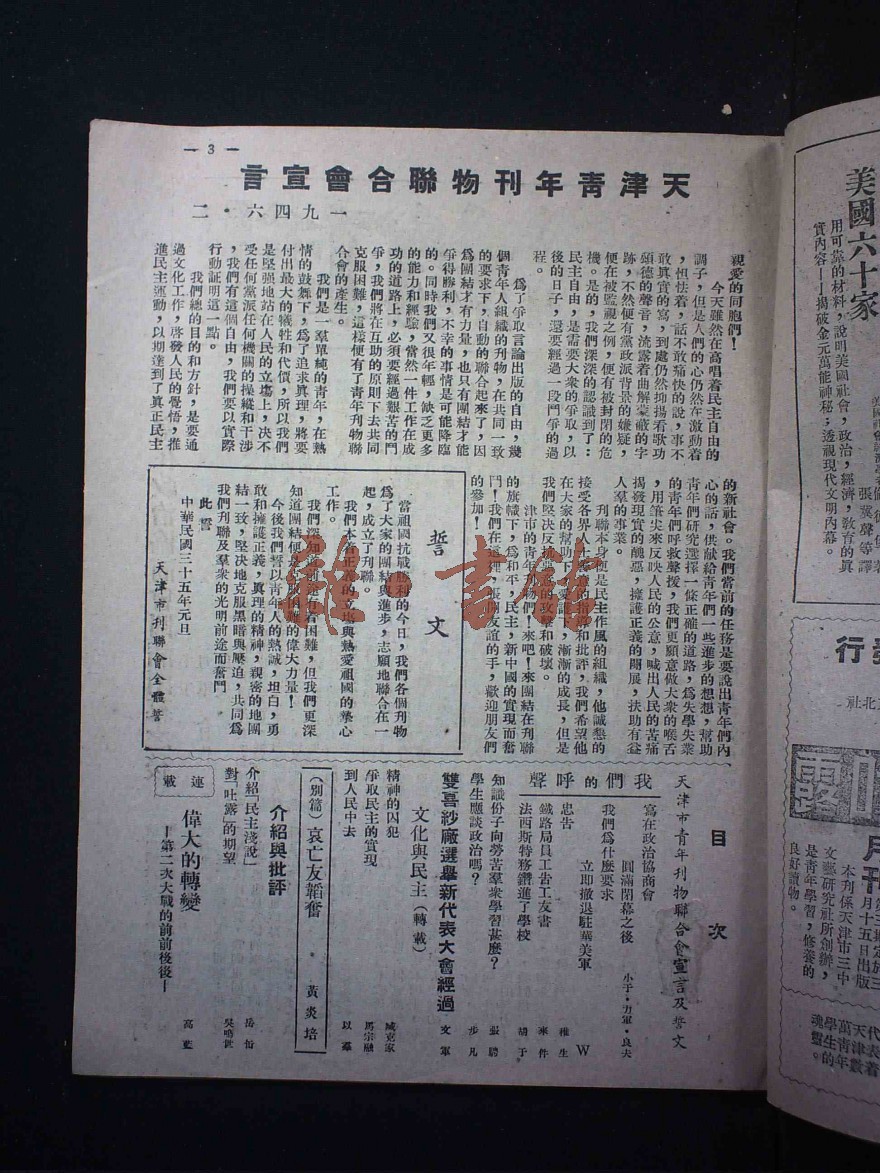 — 3 —
天津靑年刊物聯合會宣言
一九四六・二
親愛的同胞們！
今天雖然在高唱着民主自由的
調子，但是人們的心仍然在激動着
，怛怯着，話不敢痛快的說，事不
敢真實的寫，到處仍然抑揚看歌功
頌德的聲音，流露着曲解蒙蔽的字
跡，不然便有黨政派背景的嫌疑，
便在被監視之例，便有被封閉的危
機。是的，我們深深的認識到了：
民主自由，是需要大衆的爭取，以
後的日子，還要經過一段鬥爭的過
程。
爲了爭取言論出版的自由，幾
個靑年人組織的刊物，在共同一致
的要求下，自動的聯合起來了，因
爲團結才有力量，也只有團結才能
爭得勝利，不幸的事情是可能降臨
的。同時我們又很年輕，缺乏更多
的能力和經驗，當然一件工作在成
功的道路上，必須要經過艱苦的鬥
爭，我們將在互助的原則下去共同
克服困難，這樣便有了靑年刊物聯
合會的產生。
我們是一羣單純的靑年，在熱
情的鼓舞下，爲了追求眞理，將要
付出最大的犧牲和代價，所以我們
是堅强地站在人民的立塲上，決不
受任何黨派任何機關的操縱和干涉
，我們有這個自由，我們要以實際
行動証明這一點。
我們總的目的和方針，是要通
過文化工作，啓發人民的覺悟，推
進民主運動，以期達到了眞正民主
的新社會。我們當前的任務是要說出靑年們內
心的話，供献給靑年們一些進步的想想，幫助
靑年們研究選擇一條正確的道路，爲失學失業
的靑年們呼救聲援，我們更願意做大衆的喉舌
，用筆尖來反映人民的公意，喊出人民的苦痛
揭發現實的醜惡，擁護正義的開展，扶助有益
人羣的事業。
刊聯本身更是民主作風的組織，他誠懇的
接受各界人士善意的指導和批評，我們希望他
在大家的幫助下，愛護下，漸漸的成長，但是
我們堅决反抗惡意的攻擊和破壞。
津市的靑年刊物們！來吧！來團結在刊聯
的旗幟下，爲和平，民主，新中國的實現而奮
鬥！我們在這裡，張開友誼的手，歡迎朋友們
的參加！
誓文
當祖國抗戰勝利的今日，我們各個刊物
爲了大家的團結與進步，志願地聯合在一
起，成立了刊聯。
我們本着正義的立塲與熱愛祖國的摯心
工作。
我們深知道前途有着困難，但我們更深
知道團結便是克服困難的偉大力量！
今後我們誓以靑年人的熱誠，坦白，勇
敢和擁護正義，眞理的精神，親密的地團
結一致，堅决地克服黑暗與壓迫，共同爲
我們刊聯及羣衆的光明前途而奮鬥
此誓
中華民國三十五年元旦
天津市刊聯會全體誓
目次
天津市靑年刊物聯合會宣言及誓文
我們的呼聲
寫在政治協商會
圓滿閉幕之後 小于・力軍・良夫
我們爲什麼要求
立即撤退駐華美軍 W
忠告 稚生
鐵路局員工告工友書 來件
法西斯特務鑽進了學校 胡予
知識份子向勞苦羣衆學習甚麼？ 張騁
學生應談政治嗎？ 步凡
雙喜紗廠選擧新代表大會經過 文軍
文化與民主（轉載）
精神的囚犯 臧克家
爭取民主的實現 馬宗融
到人民中去 以羣
（別篇）哀亡友韜奮・黃炎培
介紹與批評
介紹「民主淺說」 岳佁
對「吐露」的期望 吳鳴世
連載
偉大的轉變
—第二次大戰的前前後後— 高藍
美國六十家
用可靠的材料，說明美國社會，政治，經濟，敎育的眞
實內容——揭破金元萬能神秘；透視現代文明內幕。
張冀聲等譯
行
北社
露
月刊
月十五日出版
本刊係天津市三中
文藝研究社所創辦，
是靑年學習，修養的
良好讀物。
代表着
天津數
萬靑年
學生的
魂靈。